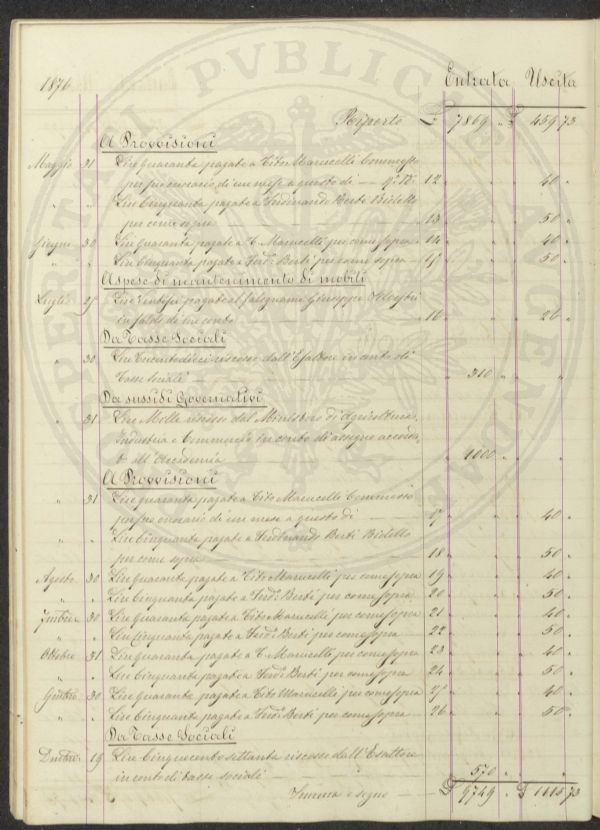 1876 Entrata Uscita
Riporto £ 7869 " £ 459 73
A Provvisioni
Maggio 31 Lire quaranta pagate a Tito Marucelli Commesso
per suo onorario di un mese a questo dì — N° 12 " " 40 "
" " Lire Cinquanta pagate a Ferdinando Berti Bidello
per come sopra 13 " " 50 "
Giugno 30 Lire quaranta pagate a T. Marucelli per come sopra 14 " " 40 "
" " Lire Cinquanta pagate a Ferd.° Berti per come sopra 15 " " 50 "
A spese di mantenimento di mobili
Luglio 27 Lire ventisei pagate al falegname Giuseppe
in saldo di suo conto 16 " " 26 "
Da Tasse Sociali
" 30 Lire trecentodieci riscosse dall'Esattore in conto di
tasse sociali " 310 " "
Da sussidi Governativi
" 31 Lire Mille riscosse dal Ministero di Agricoltura,
Industria e Commercio in conto di assegno accorda
to all'Accademia " 1000 " "
A Provvisioni
" 31 Lire quaranta pagate a Tito Marucelli Commesso
per suo onorario di un mese a questo dì 17 " " 40 "
" " Lire Cinquanta pagate a Ferdinando Berti Bidello
per come sopra 18 " " 50 "
Agosto 30 Lire quaranta pagate a Tito Marucelli per come sopra 19 " " 40 "
" " Lire Cinquanta pagate a Ferd.° Berti per come sopra 20 " " 50 "
7mbre 30 Lire quaranta pagate a Tito Marucelli per come sopra 21 " " 40 "
" " Lire Cinquanta pagate a Ferd.° Berti per come sopra 22 " " 50 "
Ottobre 31 Lire quaranta pagate a T. Marucelli per come sopra 23 " " 40 "
" " Lire Cinquanta pagate a Ferd.° Berti per come sopra 24 " " 50 "
9mbre 30 Lire quaranta pagate a Tito Marucelli per come sopra 25 " " 40 "
" " Lire Cinquanta pagate a Ferd.° Berti per come sopra 26 " " 50 "
Da Tasse Sociali
Dmbre 19 Lire Cinquecentosettanta riscosse dall'Esattore
in conto di tasse sociali 570 " "
Somma e segue £ 9749 " £ 1115 73